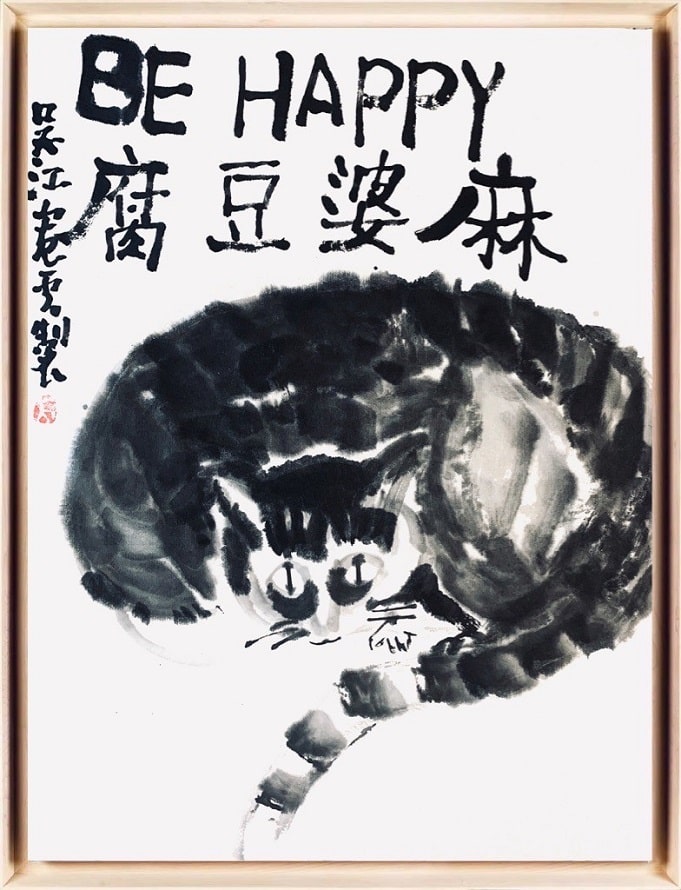 BE HAPPY
麻婆豆腐
吴江製